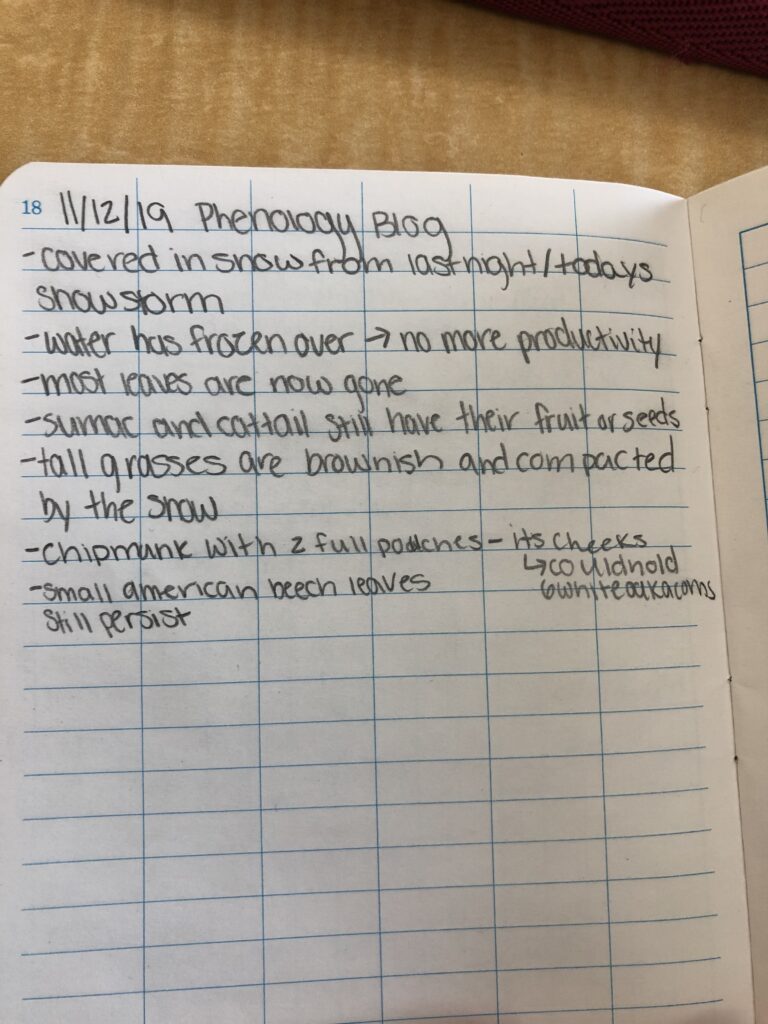 18 11/12/19 Phenology Blog
-covered in snow from last night/todays
snowstorm
-water has frozen over → no more productivity
-most leaves are now gone
-sumac and cattail still have their fruit or seeds
-tall grasses are brownish and compacted
by the snow
-chipmunk with 2 full pouches - its cheeks
↳ could hold
6 white oak acorns
-small american beech leaves
still persist